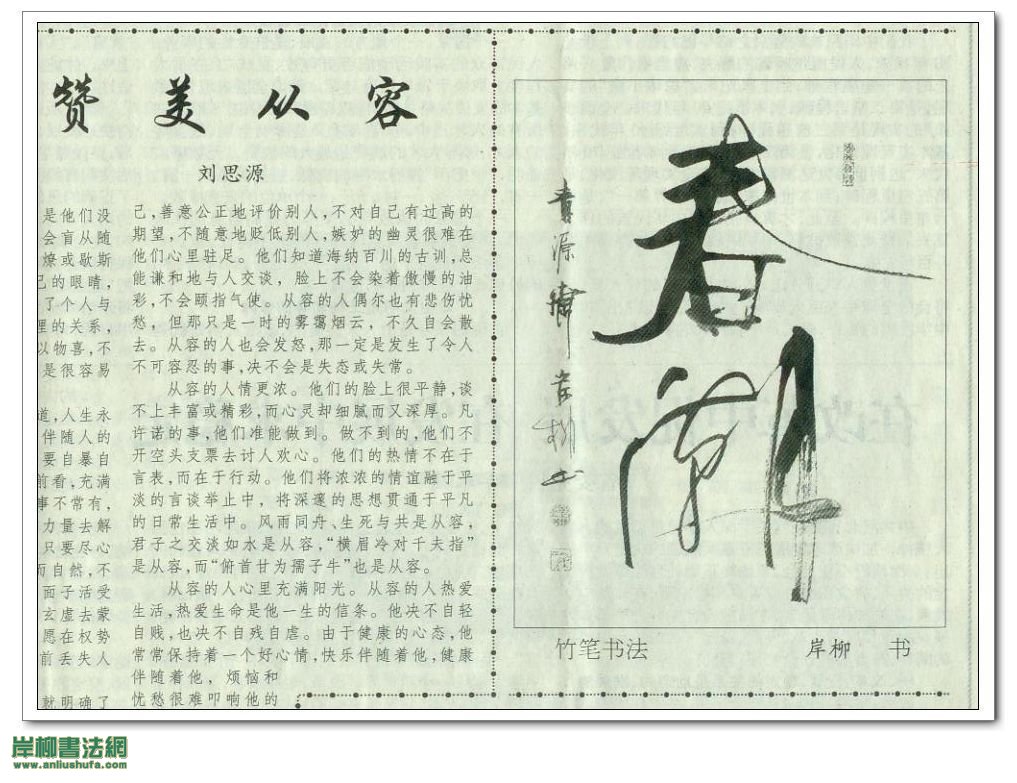 赞美从容
刘思源
是他们没
会盲从随
燎或歇斯
己的眼睛,
了个人与
理的关系,
以物喜,不
是很容易
道,人生永
伴随人的
要自暴自
前看,充满
事不常有,
力量去解
只要尽心
而自然,不
面子活受
玄虚去蒙
愿在权势
前丢失人
就明确了
己,善意公正地评价别人,不对自己有过高的
期望,不随意地贬低别人,嫉妒的幽灵很难在
他们心里驻足。他们知道海纳百川的古训,总
能谦和地与人交谈,脸上不会染着傲慢的油
彩,不会颐指气使。从容的人偶尔也有悲伤忧
愁,但那只是一时的雾霭烟云,不久自会散
去。从容的人也会发怒,那一定是发生了令人
不可容忍的事,决不会是失态或失常。
从容的人情更浓。他们的脸上很平静,谈
不上丰富或精彩,而心灵却细腻而又深厚。凡
许诺的事,他们准能做到。做不到的,他们不
开空头支票去讨人欢心。他们的热情不在于
言表,而在于行动。他们将浓浓的情谊融于平
淡的言谈举止中,将深邃的思想贯通于平凡
的日常生活中。风雨同舟、生死与共是从容,
君子之交淡如水是从容,“横眉冷对千夫指”
是从容,而“俯首甘为孺子牛”也是从容。
从容的人心里充满阳光。从容的人热爱
生活,热爱生命是他一生的信条。他决不自轻
自贱,也决不自残自虐。由于健康的心态,他
常常保持着一个好心情,快乐伴随着他,健康
伴随着他,烦恼和
忧愁很难叩响他的
春潮
竹笔书法
岸柳 书
岸柳書法網
www.anliushufa.com